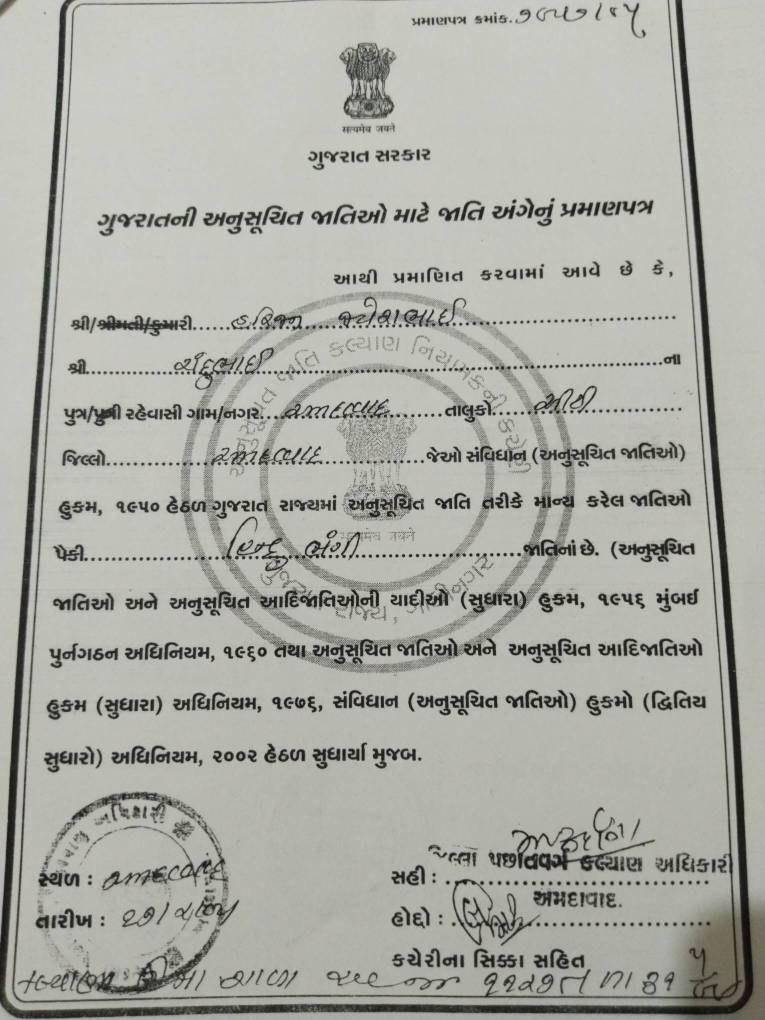 પ્રમાણપત્ર ક્રમાંક.
सत्यमेव जयते
ગુજરાત સરકાર
ગુજરાતની અનુસૂચિત જાતિઓ માટે જાતિ અંગેનું પ્રમાણપત્ર
આથી પ્રમાણિત કરવામાં આવે છે કે,
શ્રી/શ્રીમતી/કુમારી......હરિજન જયેશભાઈ
શ્રી......ચંદુભાઈ......ના
પુત્ર/પુત્રી રહેવાસી ગામ/નગર...અમદાવાદ...તાલુકો...સીટી
જિલ્લો......અમદાવાદ......જેઓ સંવિધાન (અનુસૂચિત જાતિઓ)
હુકમ, ૧૯૫૦ હેઠળ ગુજરાત રાજ્યમાં અનુસૂચિત જાતિ તરીકે માન્ય કરેલ જાતિઓ
પૈકી......હિન્દુ ભંગી......જાતિનાં છે. (અનુસૂચિત
જાતિઓ અને અનુસૂચિત આદિજાતિઓની યાદીઓ (સુધારા) હુકમ, ૧૯૫૬ મુંબઈ
પુર્નગઠન અધિનિયમ, ૧૯૬૦ તથા અનુસૂચિત જાતિઓ અને અનુસૂચિત આદિજાતિઓ
હુકમ (સુધારા) અધિનિયમ, ૧૯૭૬, સંવિધાન (અનુસૂચિત જાતિઓ) હુકમો (દ્વિતિય
સુધારો) અધિનિયમ, ૨૦૦૨ હેઠળ સુધાર્યા મુજબ.
અનુસૂચિત જાતિ કલ્યાણ નિયામકની કચેરી
ગુજરાત રાજ્ય, ગાંધીનગર
सत्यमेव जयते
જિલ્લા પછાતવર્ગ કલ્યાણ અધિકારી
સ્થળ : અમદાવાદ
સહી :
અમદાવાદ.
તારીખ :
હોદ્દો :
કચેરીના સિક્કા સહિત